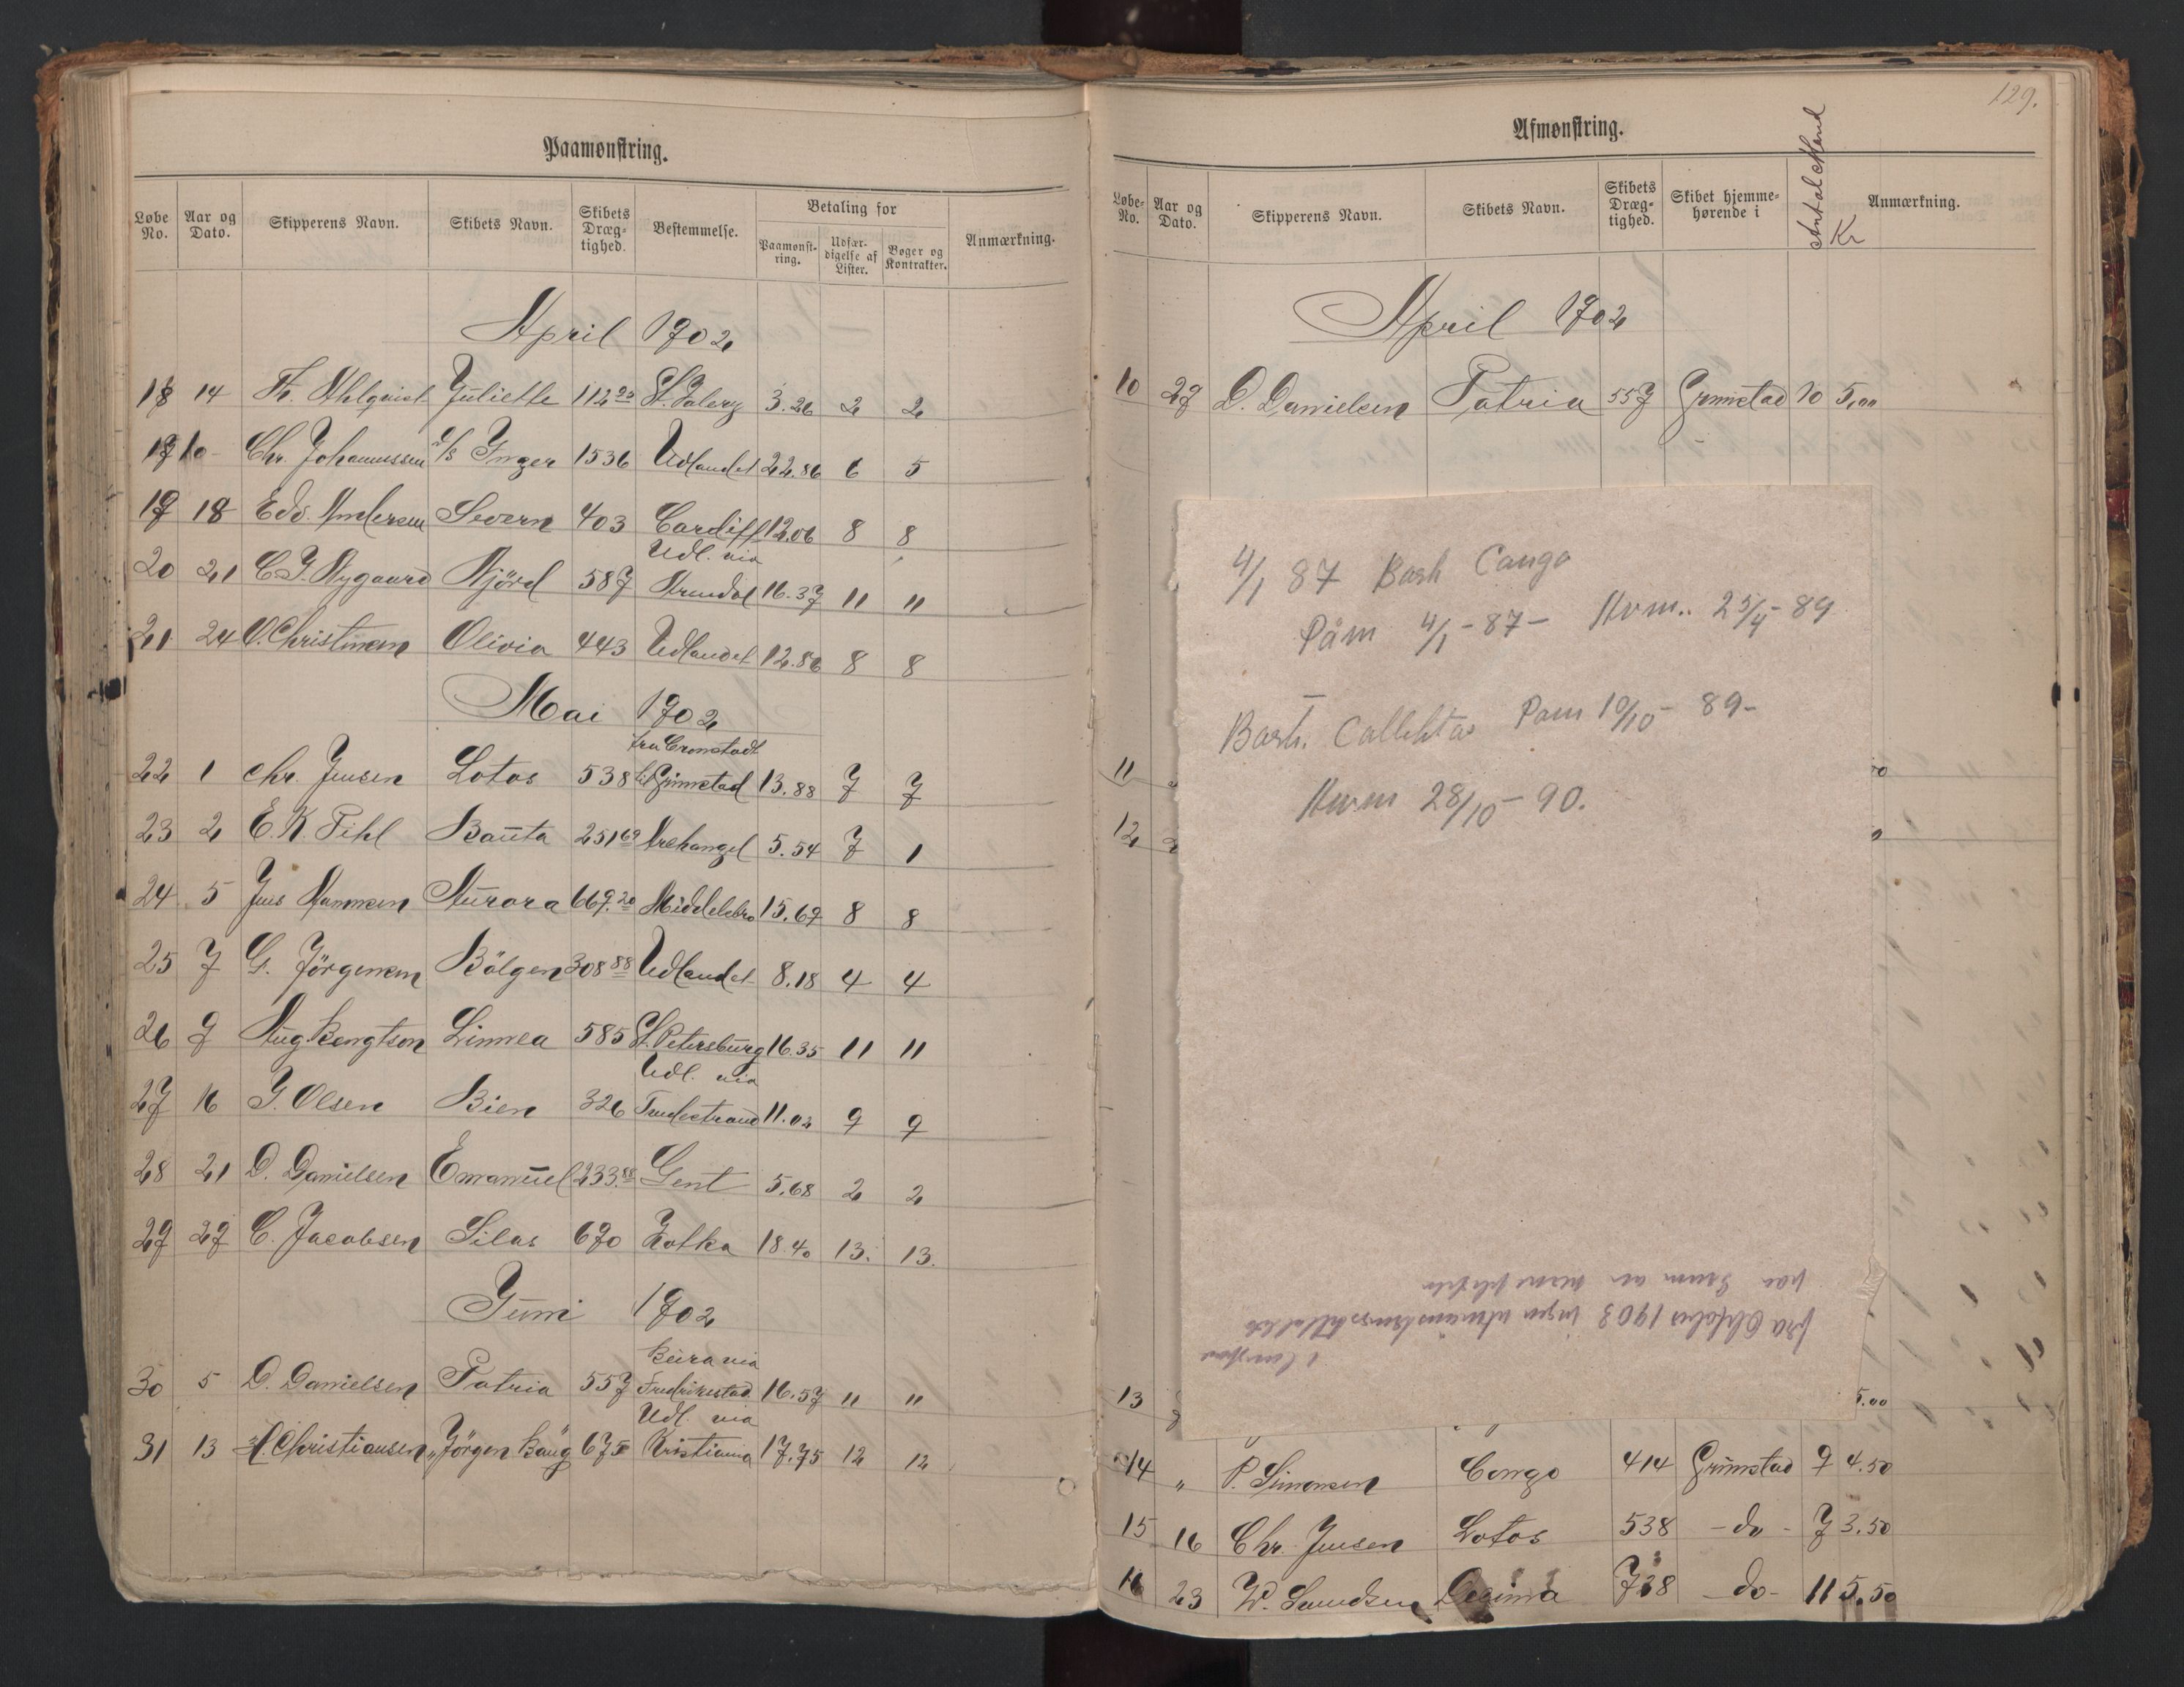 Paamønstring.
Løbe No. Aar og Dato. Skipperens Navn. Skibets Navn. Skibets Dræg-tighed. Bestemmelse. Betaling for Paamønst-ring. Udfær-digelse af Lister. Bøger og Kontrakter. Anmærkning.
April 1902
18 14 Th. Ahlquist Juliette 112 20 St. Valery 3.26 2 2
10 Chr. Johannessen s/s Inger 1536 Udlandet 22.86 6 5
19 18 Edv. Andersen Severn 403 Cardiff 12.06 8 8
Udl. via
20 21 C. J. Nygaard Njörd 587 Arendal 16.37 11 11
21 24 O. Christensen Olivia 443 Udlandet 12.86 8 8
Mai 1902
fra Cronstadt
22 1 Chr. Jensen Lotos 538 til Grimstad 13.88 7 7
23 2 E. K. Pihl Bauta 251 69 Archangel 5.54 7 1
24 5 Jens Hansen Aurora 669.20 Middelsbro 15.69 8 8
25 7 G. Jörgensen Bölgen 308 88 Udlandet 8.18 4 4
26 9 Aug. Bengtson Linnea 585 St. Petersburg 16.35 11 11
Udl. via
27 16 J. Olsen Bien 326 Tvedestrand 11.02 9 9
28 21 D. Danielsen Emanuel 233.88 Gent 5.68 2 2
29 29 C. Jacobsen Silas 690 Kotka 18.40 13. 13.
Juni 1902
Beira via
30 5 D. Danielsen Patria 557 Fredrikstad 16.57 11 11
Udl. via
31 13 A. Christiansen "Jörgen Bang 675 Kristiania 17.75 12 12
129.
Afmønstring.
Løbe-No. Aar og Dato. Skipperens Navn. Skibets Navn. Skibets Dræg-tighed. Skibet hjemme-hørende i Antal Mand Kr Anmærkning.
April 1902
10 29 D. Danielsen Patria 557 Grimstad 10 5,00
4/1 87 Bark Cango
Påm 4/1 - 87 - Avm.. 25/4 - 89
Bark. Callehtas Pam 10/10 - 89 -
Avm 28/10 - 90.
fra Oktober 1903
paa
11
12
13 5.00
14 " P. Simonsen Congo 414 Grimstad 9 4.50
15 16 Chr. Jensen Lotos 538 - do - 7 3.50
16 23 W. Lundsen Decima 738 - do - 11 5.50